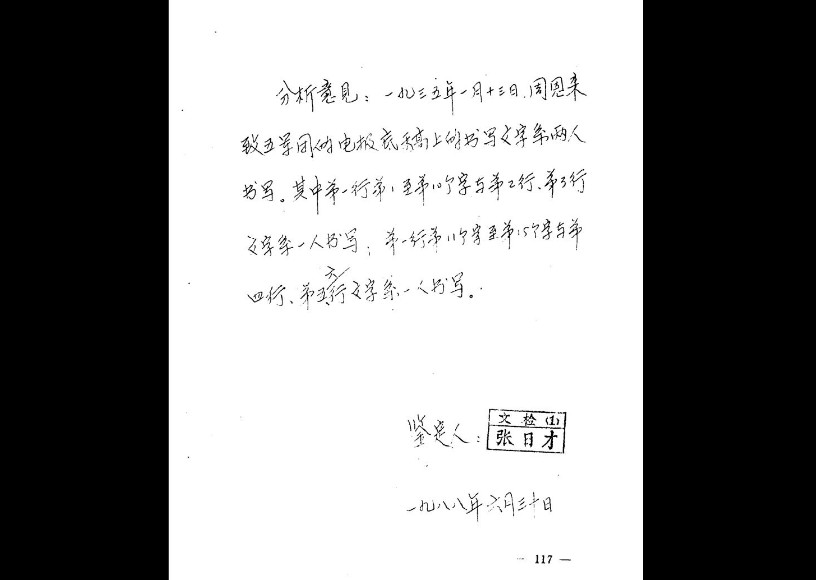 分析意见：一九三五年一月十三日，周恩来
致五军团的电报底稿上的书写文字系两人
书写。其中第一行第1至第10个字与第2行、第3行
文字系一人书写；第一行第11个字至第15个字与第
四行、第五、六行文字系一人书写。
鉴定人：
文检(1)
张日才
一九八八年六月三十日
— 117 —